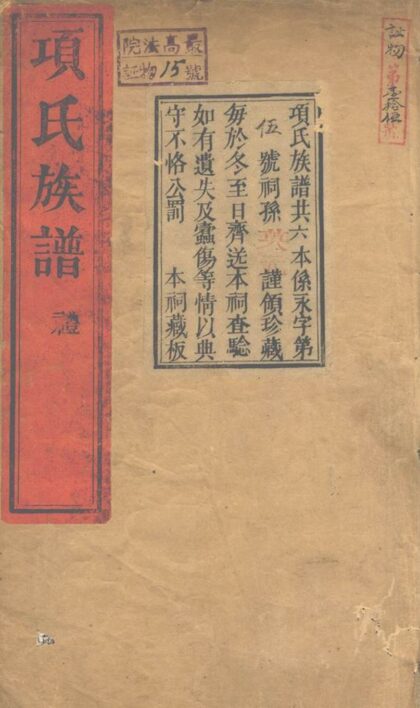 項氏族譜
禮
最高法院
證物15號
證物第
項氏族譜共六本係永字第
伍號祠孫 謹領珍藏
每於冬至日齊送本祠查驗
如有遺失及蠹傷等情以典
守不恪公罰 本祠藏板